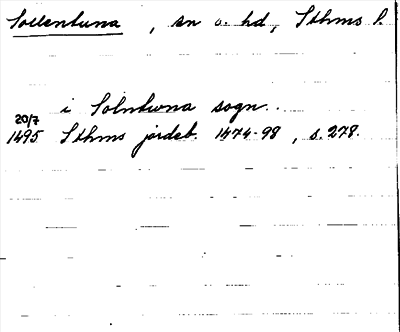 Sollentuna, sn o. hd, Sthms l.
i Solntuna sogn.
20/7
1495 Sthms jordeb. 1474-98, s. 278.